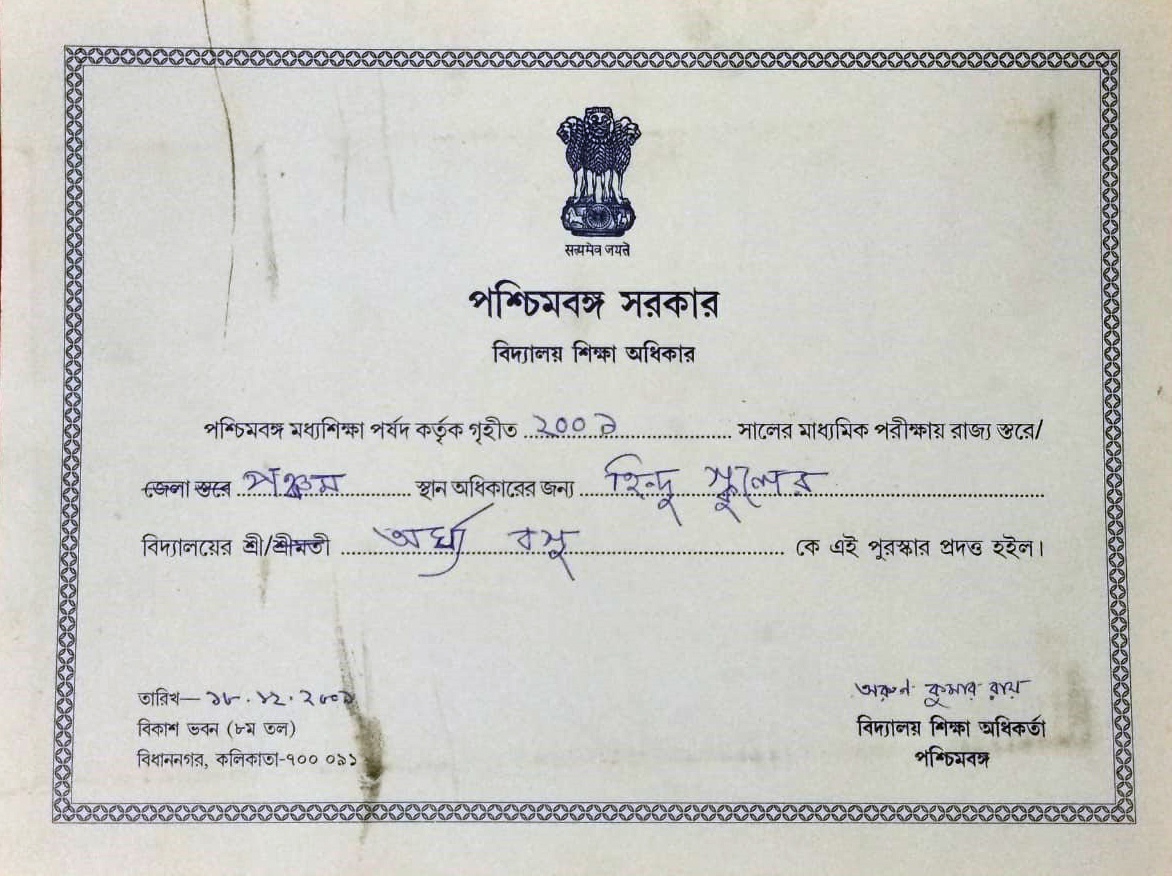 सत्यमेव जयते
পশ্চিমবঙ্গ সরকার
বিদ্যালয় শিক্ষা অধিকার
পশ্চিমবঙ্গ মধ্যশিক্ষা পর্ষদ কর্তৃক গৃহীত ২০০৯ সালের মাধ্যমিক পরীক্ষায় রাজ্য স্তরে/
জেলা স্তরে পঞ্চম স্থান অধিকারের জন্য হিন্দু স্কুলের
বিদ্যালয়ের শ্রী/শ্রীমতী অর্ঘ্য বসু কে এই পুরস্কার প্রদত্ত হইল।
তারিখ— ১৮.১২.২০০৯
বিকাশ ভবন (৮ম তল)
বিধাননগর, কলিকাতা-৭০০ ০৯১
অরুণ কুমার রায়
বিদ্যালয় শিক্ষা অধিকর্তা
পশ্চিমবঙ্গ